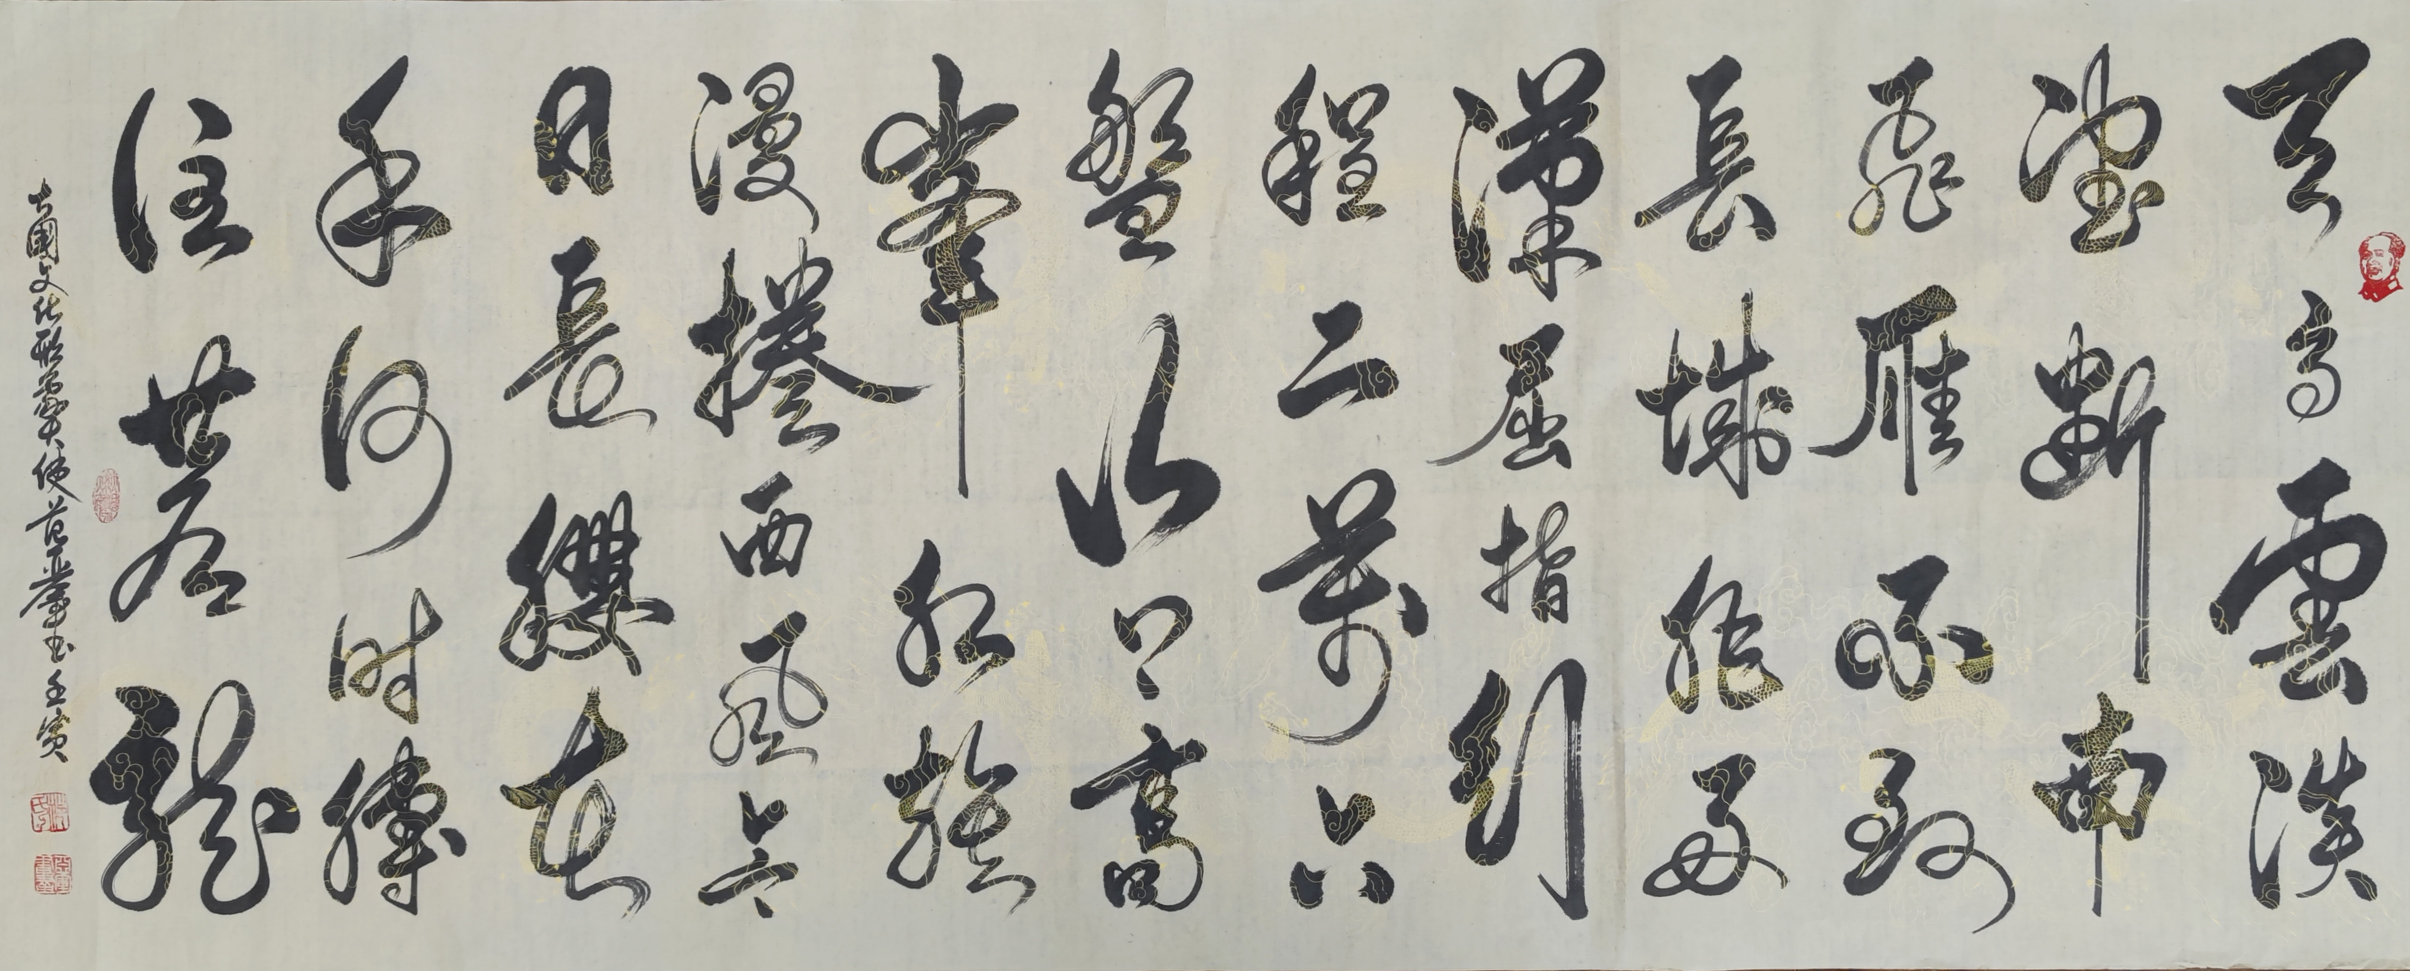 天高雲淡
望斷南
飛雁不到
長城非好
漢屈指行
程二萬六
盤山上高
峯紅旗
漫捲西風今
日長纓在
手何时縛
住蒼龍
大國文化形象大使范书壬寅